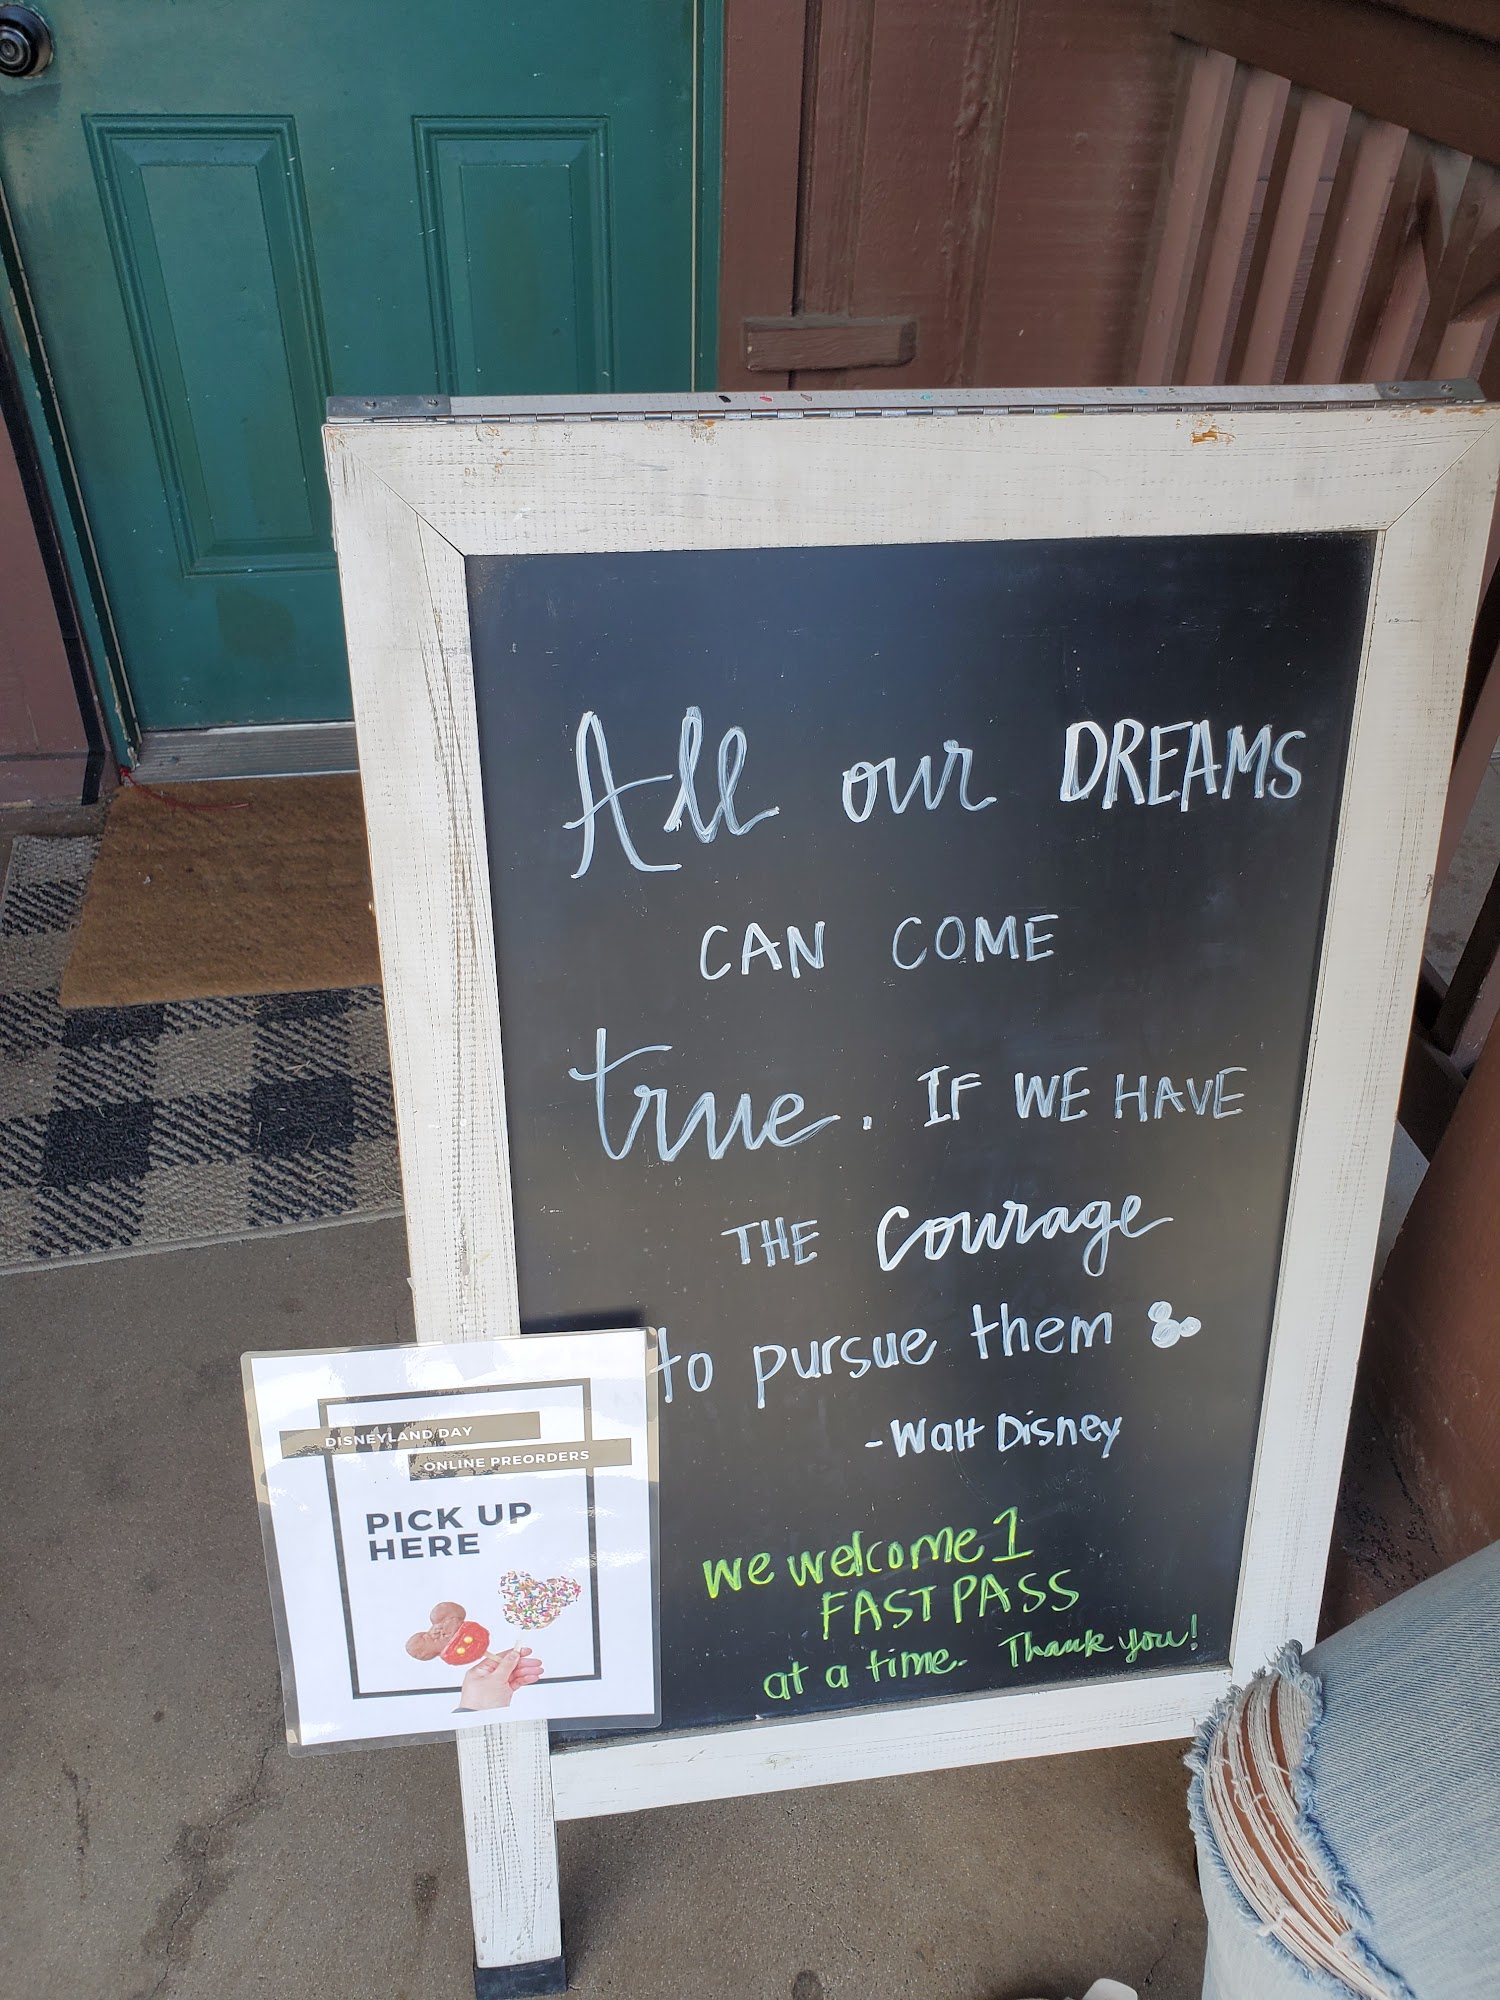 All our DREAMS
CAN COME
true. IF WE HAVE
THE Courage
to pursue them
-Walt Disney
we welcome 1
FAST PASS
at a time. Thank you!
DISNEYLAND DAY
ONLINE PREORDERS
PICK UP
HERE